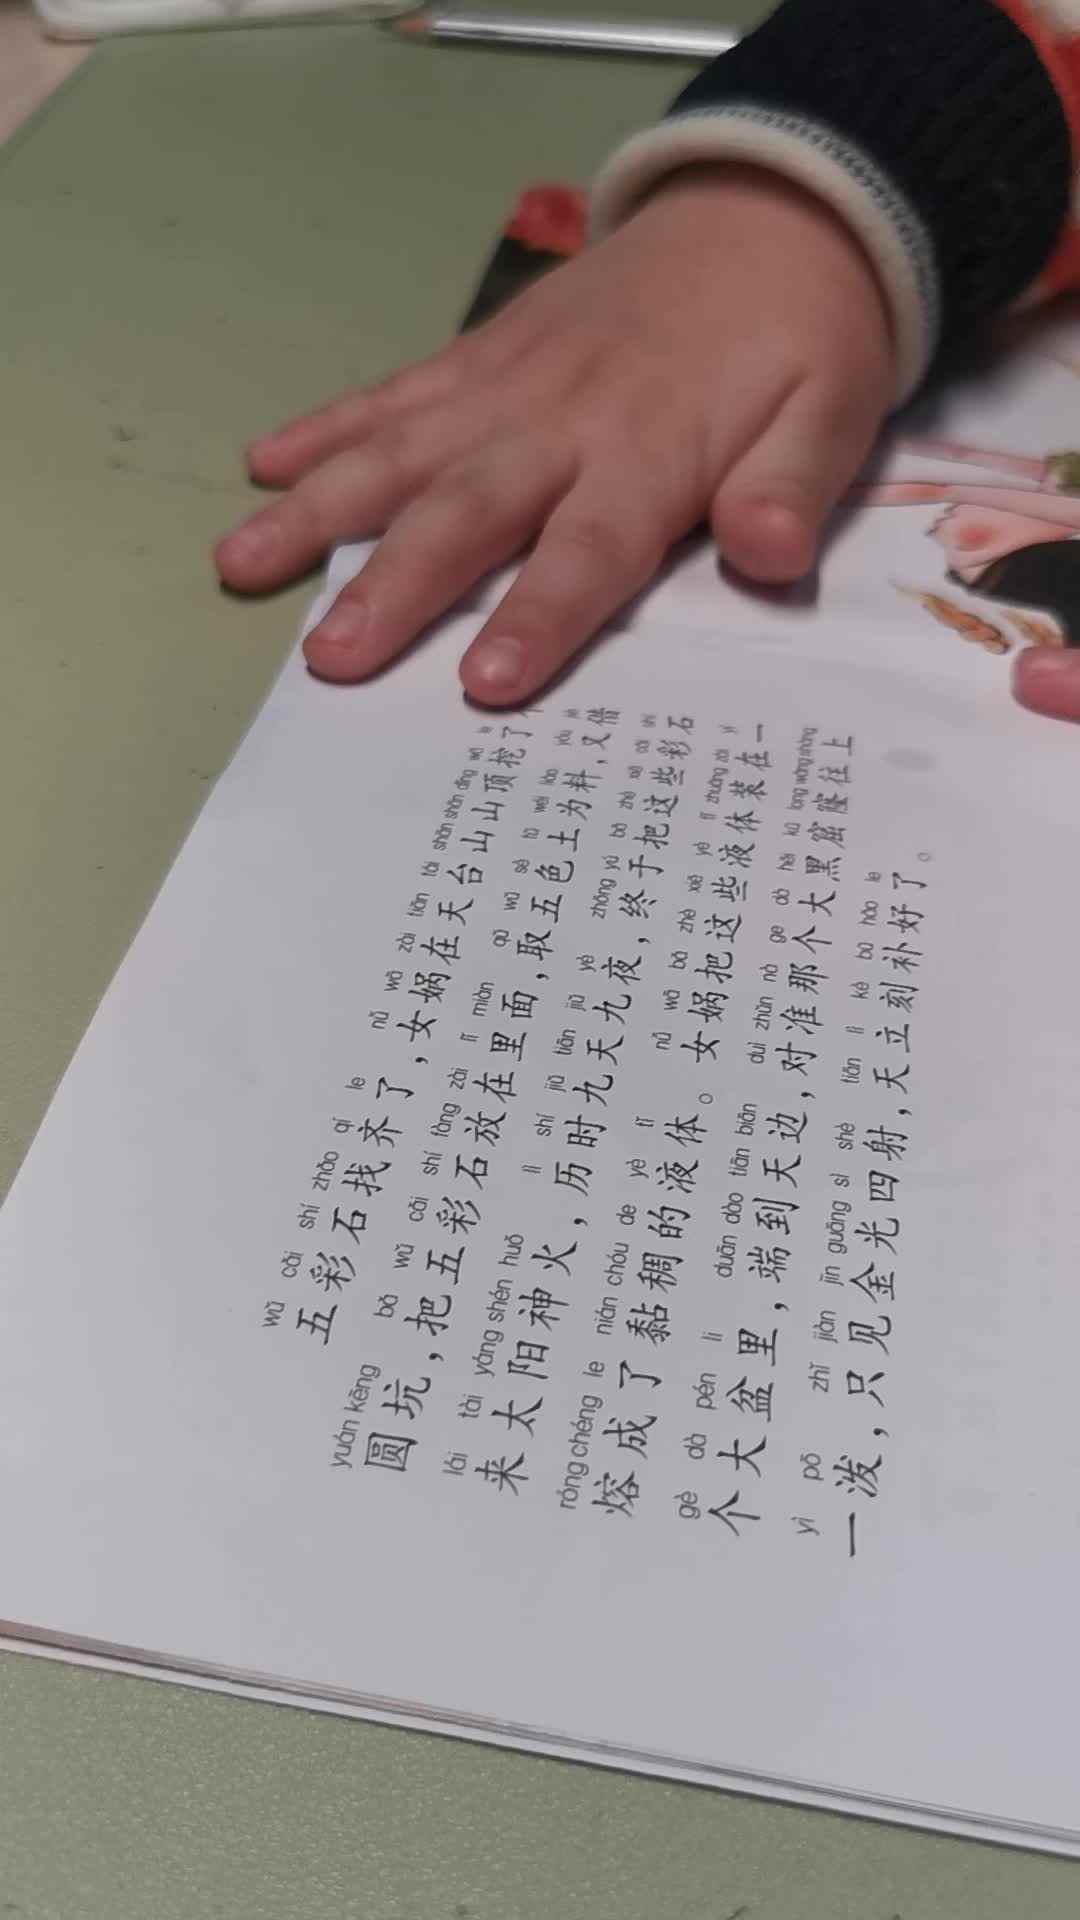 wǔ cǎi shí zhǎo qí le nǚ wā zài tiān tái shān shān dǐng wā le
五彩石找齐了，女娲在天台山山顶挖了
yuán kēng bǎ wǔ cǎi shí fàng zài lǐ miàn qǔ wǔ sè tǔ wéi liào yòu jiè
圆坑，把五彩石放在里面，取五色土为料，又借
lái tài yáng shén huǒ lì shí jiǔ tiān jiǔ yè zhōng yú bǎ zhè xiē cǎi shí
来太阳神火，历时九天九夜，终于把这些彩石
róng chéng le nián chóu de yè tǐ nǚ wā bǎ zhè xiē yè tǐ zhuāng zài yí
熔成了黏稠的液体。女娲把这些液体装在一
gè dà pén lǐ duān dào tiān biān duì zhǔn nà ge dà hēi kū long wǎng shàng
个大盆里，端到天边，对准那个大黑窟窿往上
yì pō zhǐ jiàn jīn guāng sì shè tiān lì kè bǔ hǎo le
一泼，只见金光四射，天立刻补好了。